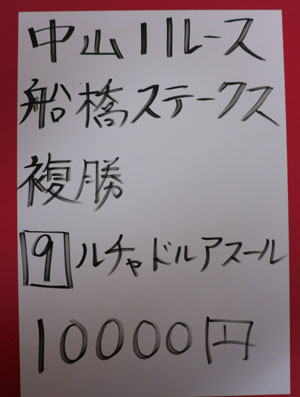 中山11レース
船橋ステークス
複勝
9 ルチャドルアスール
10000円